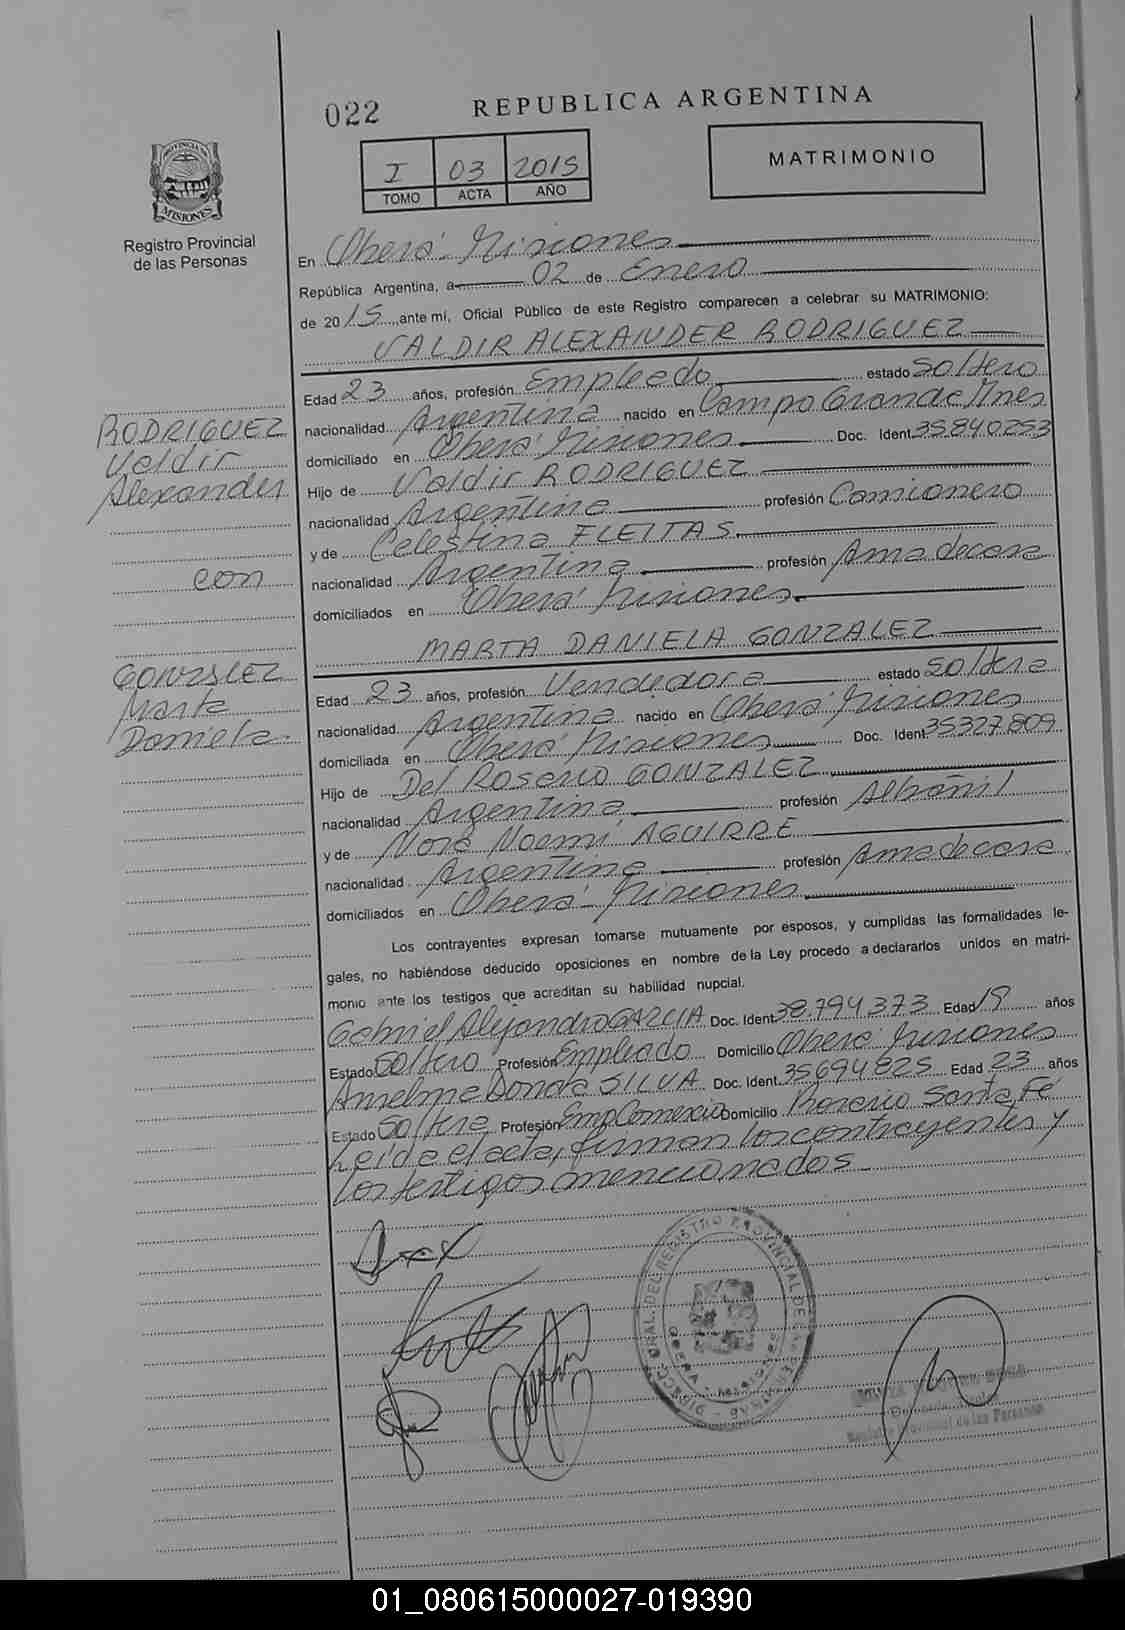 022
REPUBLICA ARGENTINA
PROVINCIA DE
MISIONES
Registro Provincial
de las Personas
I 03 2015
TOMO ACTA AÑO
MATRIMONIO
En Oberá - Misiones
República Argentina, a 02 de Enero
de 2015 ante mi, Oficial Público de este Registro comparecen a celebrar su MATRIMONIO:
VALDIR ALEXANDER RODRIGUEZ
Edad 23 años, profesión Empleado estado Soltero
nacionalidad Argentina nacido en Campo Grande Mnes
domiciliado en Oberá Misiones Doc. Ident. 35840253
Hijo de Valdir RODRIGUEZ
nacionalidad Argentina profesión Camionero
y de Celestina FLEITAS
nacionalidad Argentina profesión Ama de casa
domiciliados en Oberá Misiones
RODRIGUEZ
Valdir
Alexander
con
GONZALEZ
Marta
Daniela
MARTA DANIELA GONZALEZ
Edad 23 años, profesión Vendedora estado Soltera
nacionalidad Argentina nacido en Oberá Misiones
domiciliada en Oberá Misiones Doc. Ident. 35327.809
Hijo de Del Rosario GONZALEZ
nacionalidad Argentina profesión Albañil
y de Nora Noemí AGUIRRE
nacionalidad Argentina profesión Ama de casa
domiciliados en Oberá - Misiones
Los contrayentes expresan tomarse mutuamente por esposos, y cumplidas las formalidades le-
gales, no habiéndose deducido oposiciones en nombre de la Ley procedo a declararlos unidos en matri-
monio ante los testigos que acreditan su habilidad nupcial.
Gabriel Alejandro GARCIA Doc. Ident. 38.794.373 Edad 19 años
Estado Soltero Profesión Empleado Domicilio Oberá Misiones
Anselma Donda SILVA Doc. Ident. 35694825 Edad 23 años
Estado Soltera Profesión Emp Comercio Domicilio Rosario Santa Fé
Leída el acta, firman los contrayentes y
los testigos mencionados
DEL REGISTRO PROVINCIAL DE
OBERA - MISIONES
Registro Provincial de las Personas
01_080615000027-019390